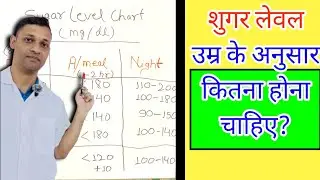 Sugar Level Chart
(mg/dl)
A/meal Night
(2 hr)
<180 110-200
140 100-180
140 90-150
<180 100-140
<120 100-140
+10
शुगर लेवल
उम्र के अनुसार
कितना होना
चाहिए?